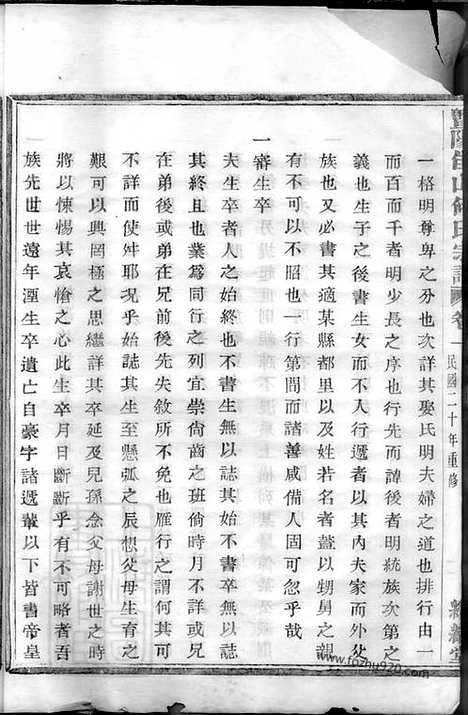 暨陽 山何氏宗譜 卷一 民國二十年重修
一格明尊卑之分也次詳其娶氏明夫婦之道也排行由一
而百而千者明少長之序也行先而諱後者明統族次第之
義也生子之後書生女而不入行遞者以其內夫家而外父
族也又必書其適某縣都里以及姓若名者蓋以甥舅之親
有不可以不同一行第間而諸善咸備人固可忽乎哉
一審生卒
夫生卒者人之始終也不書生無以誌其始不書卒無以誌
其終且也業爲同行之列宜崇尚齒之班倘時月不詳或兄
在弟後或弟在兄前後先失敘所不免也雁行之謂何其可
不詳而使舛耶況乎始誌其生之辰想父母生育之
艱可以興罔極之思繼詳其卒延及兒孫念父母謝世之時
將以悚惕其哀愴之心此生卒月日斷斷乎有不可略者吾
族先世世遠年湮生卒遺亡自豪字諸遞輩以下皆書帝皇
一
堂
tcpzhu920.com